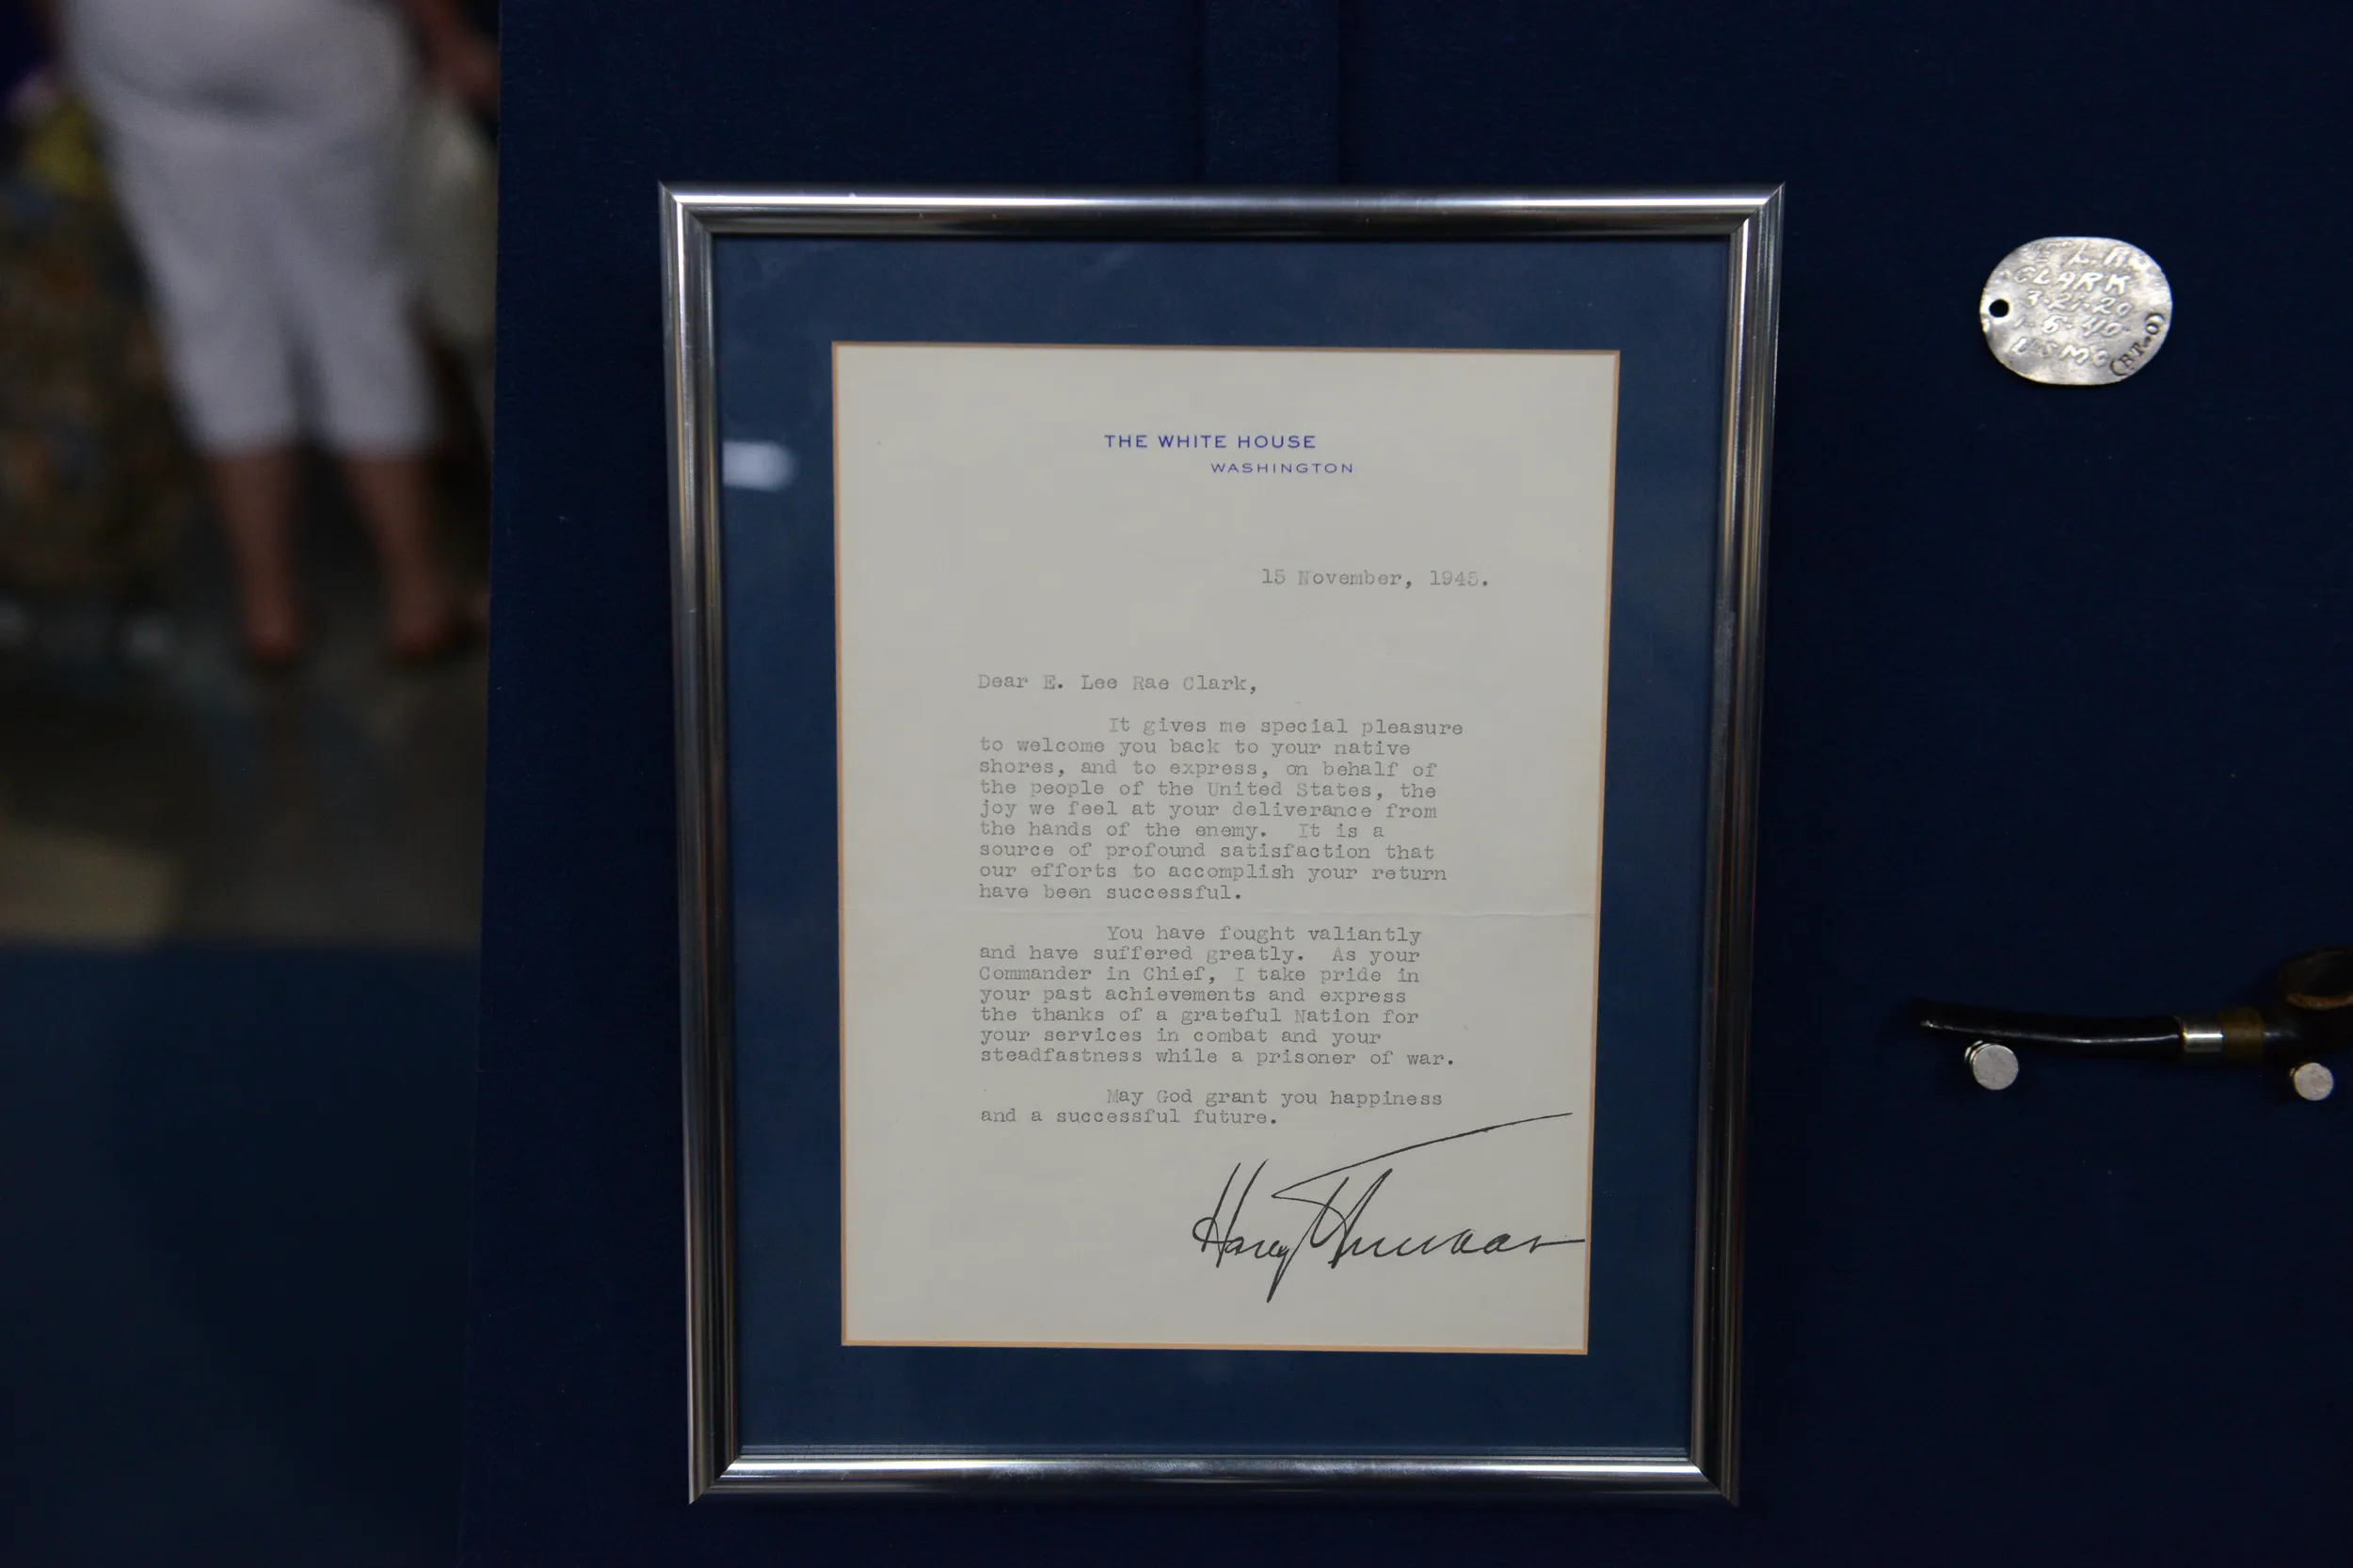 THE WHITE HOUSE
WASHINGTON
15 November, 1945.
Dear E. Lee Rae Clark,
It gives me special pleasure
to welcome you back to your native
shores, and to express, on behalf of
the people of the United States, the
joy we feel at your deliverance from
the hands of the enemy. It is a
source of profound satisfaction that
our efforts to accomplish your return
have been successful.
You have fought valiantly
and have suffered greatly. As your
Commander in Chief, I take pride in
your past achievements and express
the thanks of a grateful Nation for
your services in combat and your
steadfastness while a prisoner of war.
May God grant you happiness
and a successful future.
Harry Truman
CLARK
3-21-20
USMC